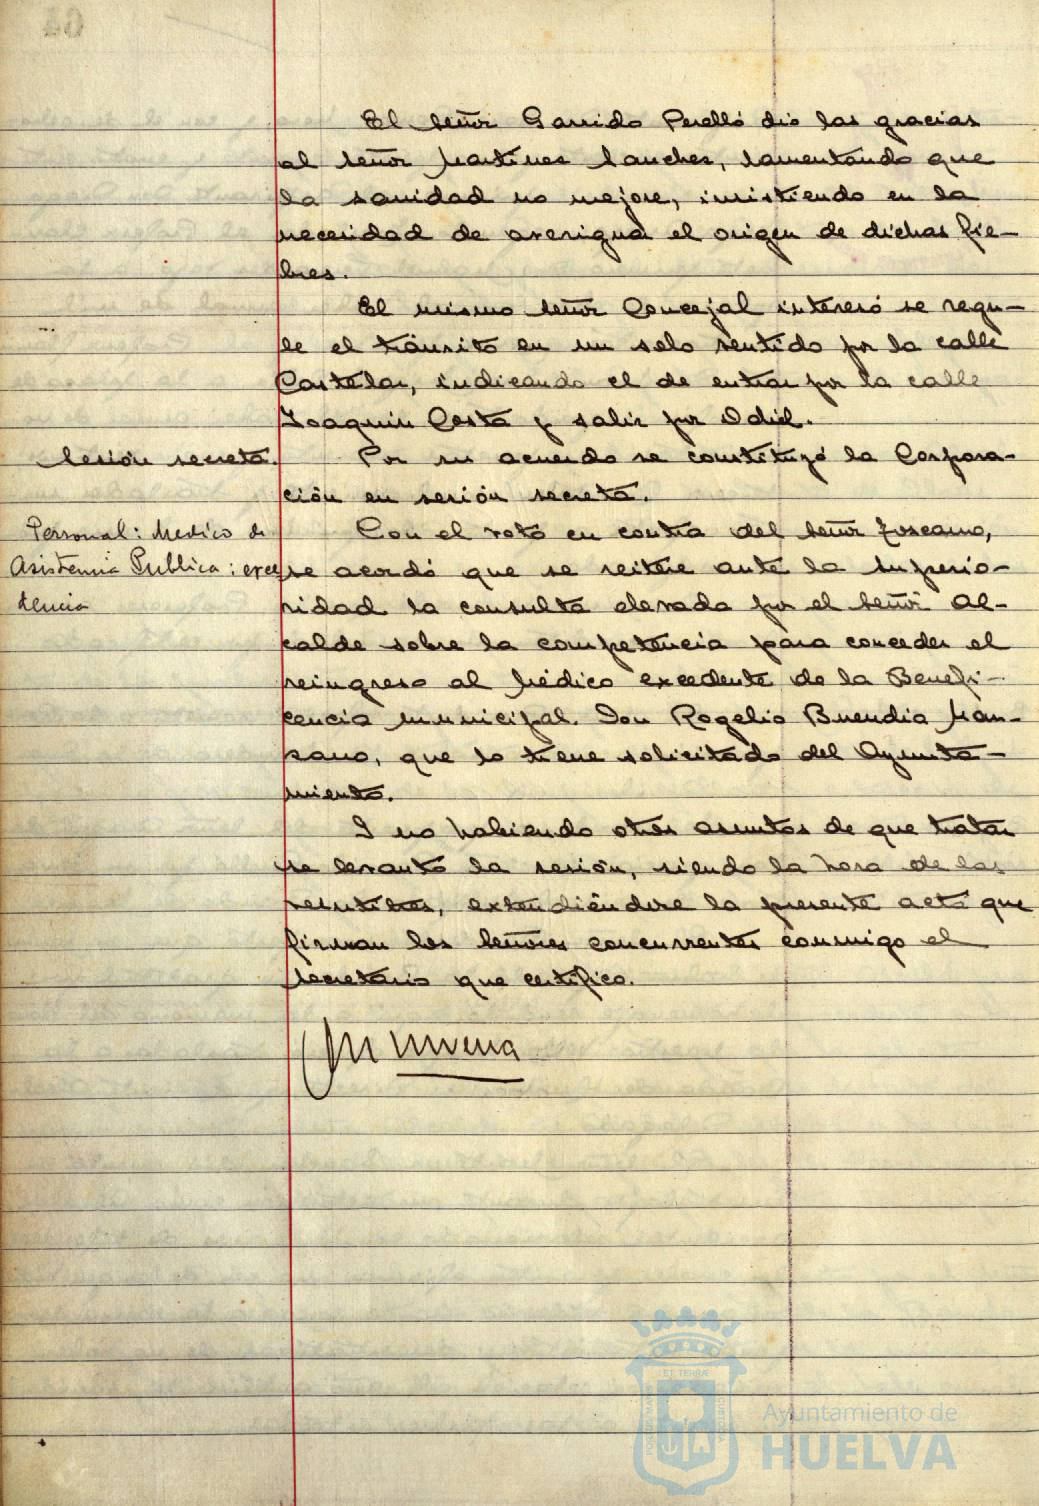 El Señor Garrido Perelló dió las gracias
al Señor Martínez Sanchez, lamentando que
la sanidad no mejore, insistiendo en la
necesidad de averiguar el origen de dichas fie-
bres.
El mismo Señor Concejal interesó se regu-
le el tránsito en un solo sentido por la calle
Castelar, indicando el de entrar por la calle
Joaquín Costa y salir por Odiel.
Sesión secreta.
Por su acuerdo se constituyó la Corpora-
ción en sesión secreta.
Personal: Medico de
Asistencia Publica: exce
dencia
Con el voto en contra del Señor Toscano,
se acordó que se reitere ante la Superio-
ridad la consulta elevada por el Señor Al-
calde sobre la competencia para conceder el
reingreso al Médico excedente de la Benefi-
cencia Municipal. Don Rogelio Buendia Man-
zano, que lo tiene solicitado del Ayunta-
miento.
I no habiendo otros asuntos de que tratar
se levantó la sesión, siendo la hora de las
extendiéndose la presente acta que
firman los Señores concurrentes conmigo el
Secretario que certifico.
Ayuntamiento de
HUELVA